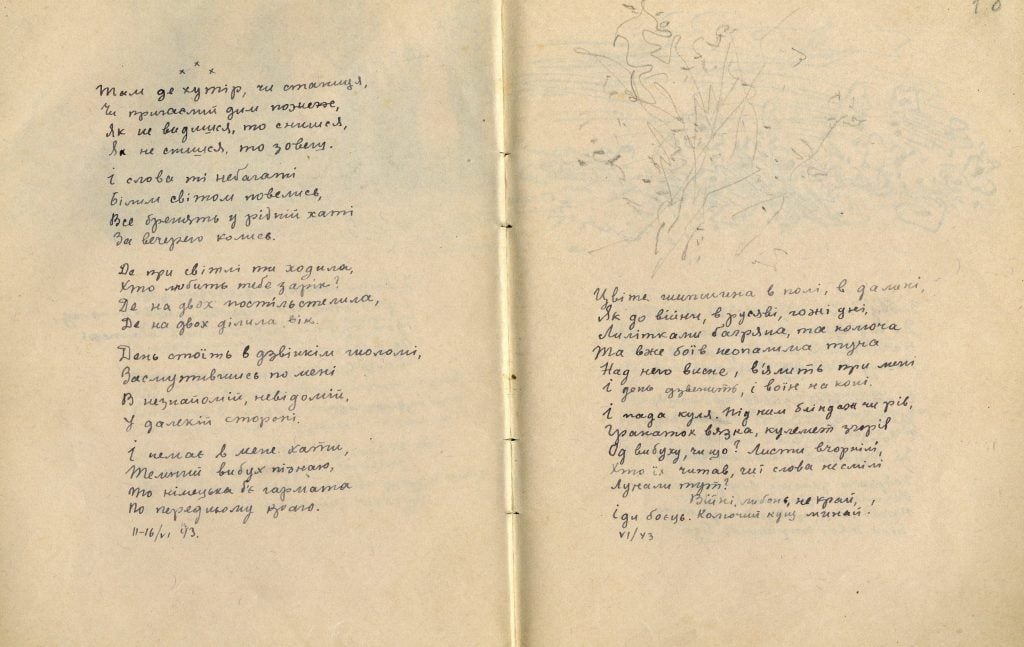 Там де хутір, чи станиця,
Чи пригаслий дим пожеж,
Як не видишся, то снишся,
Як не снишся, то зовеш.
І слова ті небагаті
Білим світом повелись,
Все бренять у рідній хаті
За вечерею колись.
Де при світлі ти ходила,
Хто любить тебе зарік?
Де на двох постіль стелила,
Де на двох ділила вік.
День стоїть в дзвінкім шоломі,
Засмутившись по мені
В незнайомій, невідомій,
У далекій стороні.
І немає в мене хати,
Темний вибух пізнаю,
То німецька б'є гармата
По передньому краю.
11-16/VI 43.
10
Цвіте шипшина в полі, в далині,
Як до війни, в русяві, гожі дні,
Пилітками багряна, та колюча
Та вже боїв неопалима туча
Над нею висне, в'ялить при мені
І день дзвенить, і воїн на коні.
І пада куля. Під ним бліндаж чи рів,
Гранаток в'язна, кулемет згорів
Од вибуху, чи що? Листи вчорнілі,
Хто їх читав, чиї слова несмілі
Лунали тут?
Війні, либонь, не край,
Іди боєць. Колючий кущ минай.
VI/43